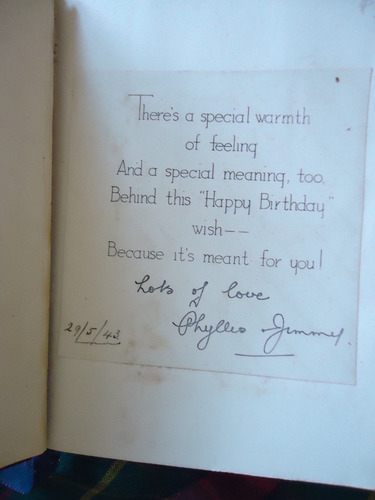 There's a special warmth
of feeling
And a special meaning, too,
Behind this "Happy Birthday"
wish--
Because it's meant for you!
Lots of love
Phyllis Jimmy.
29/5/43